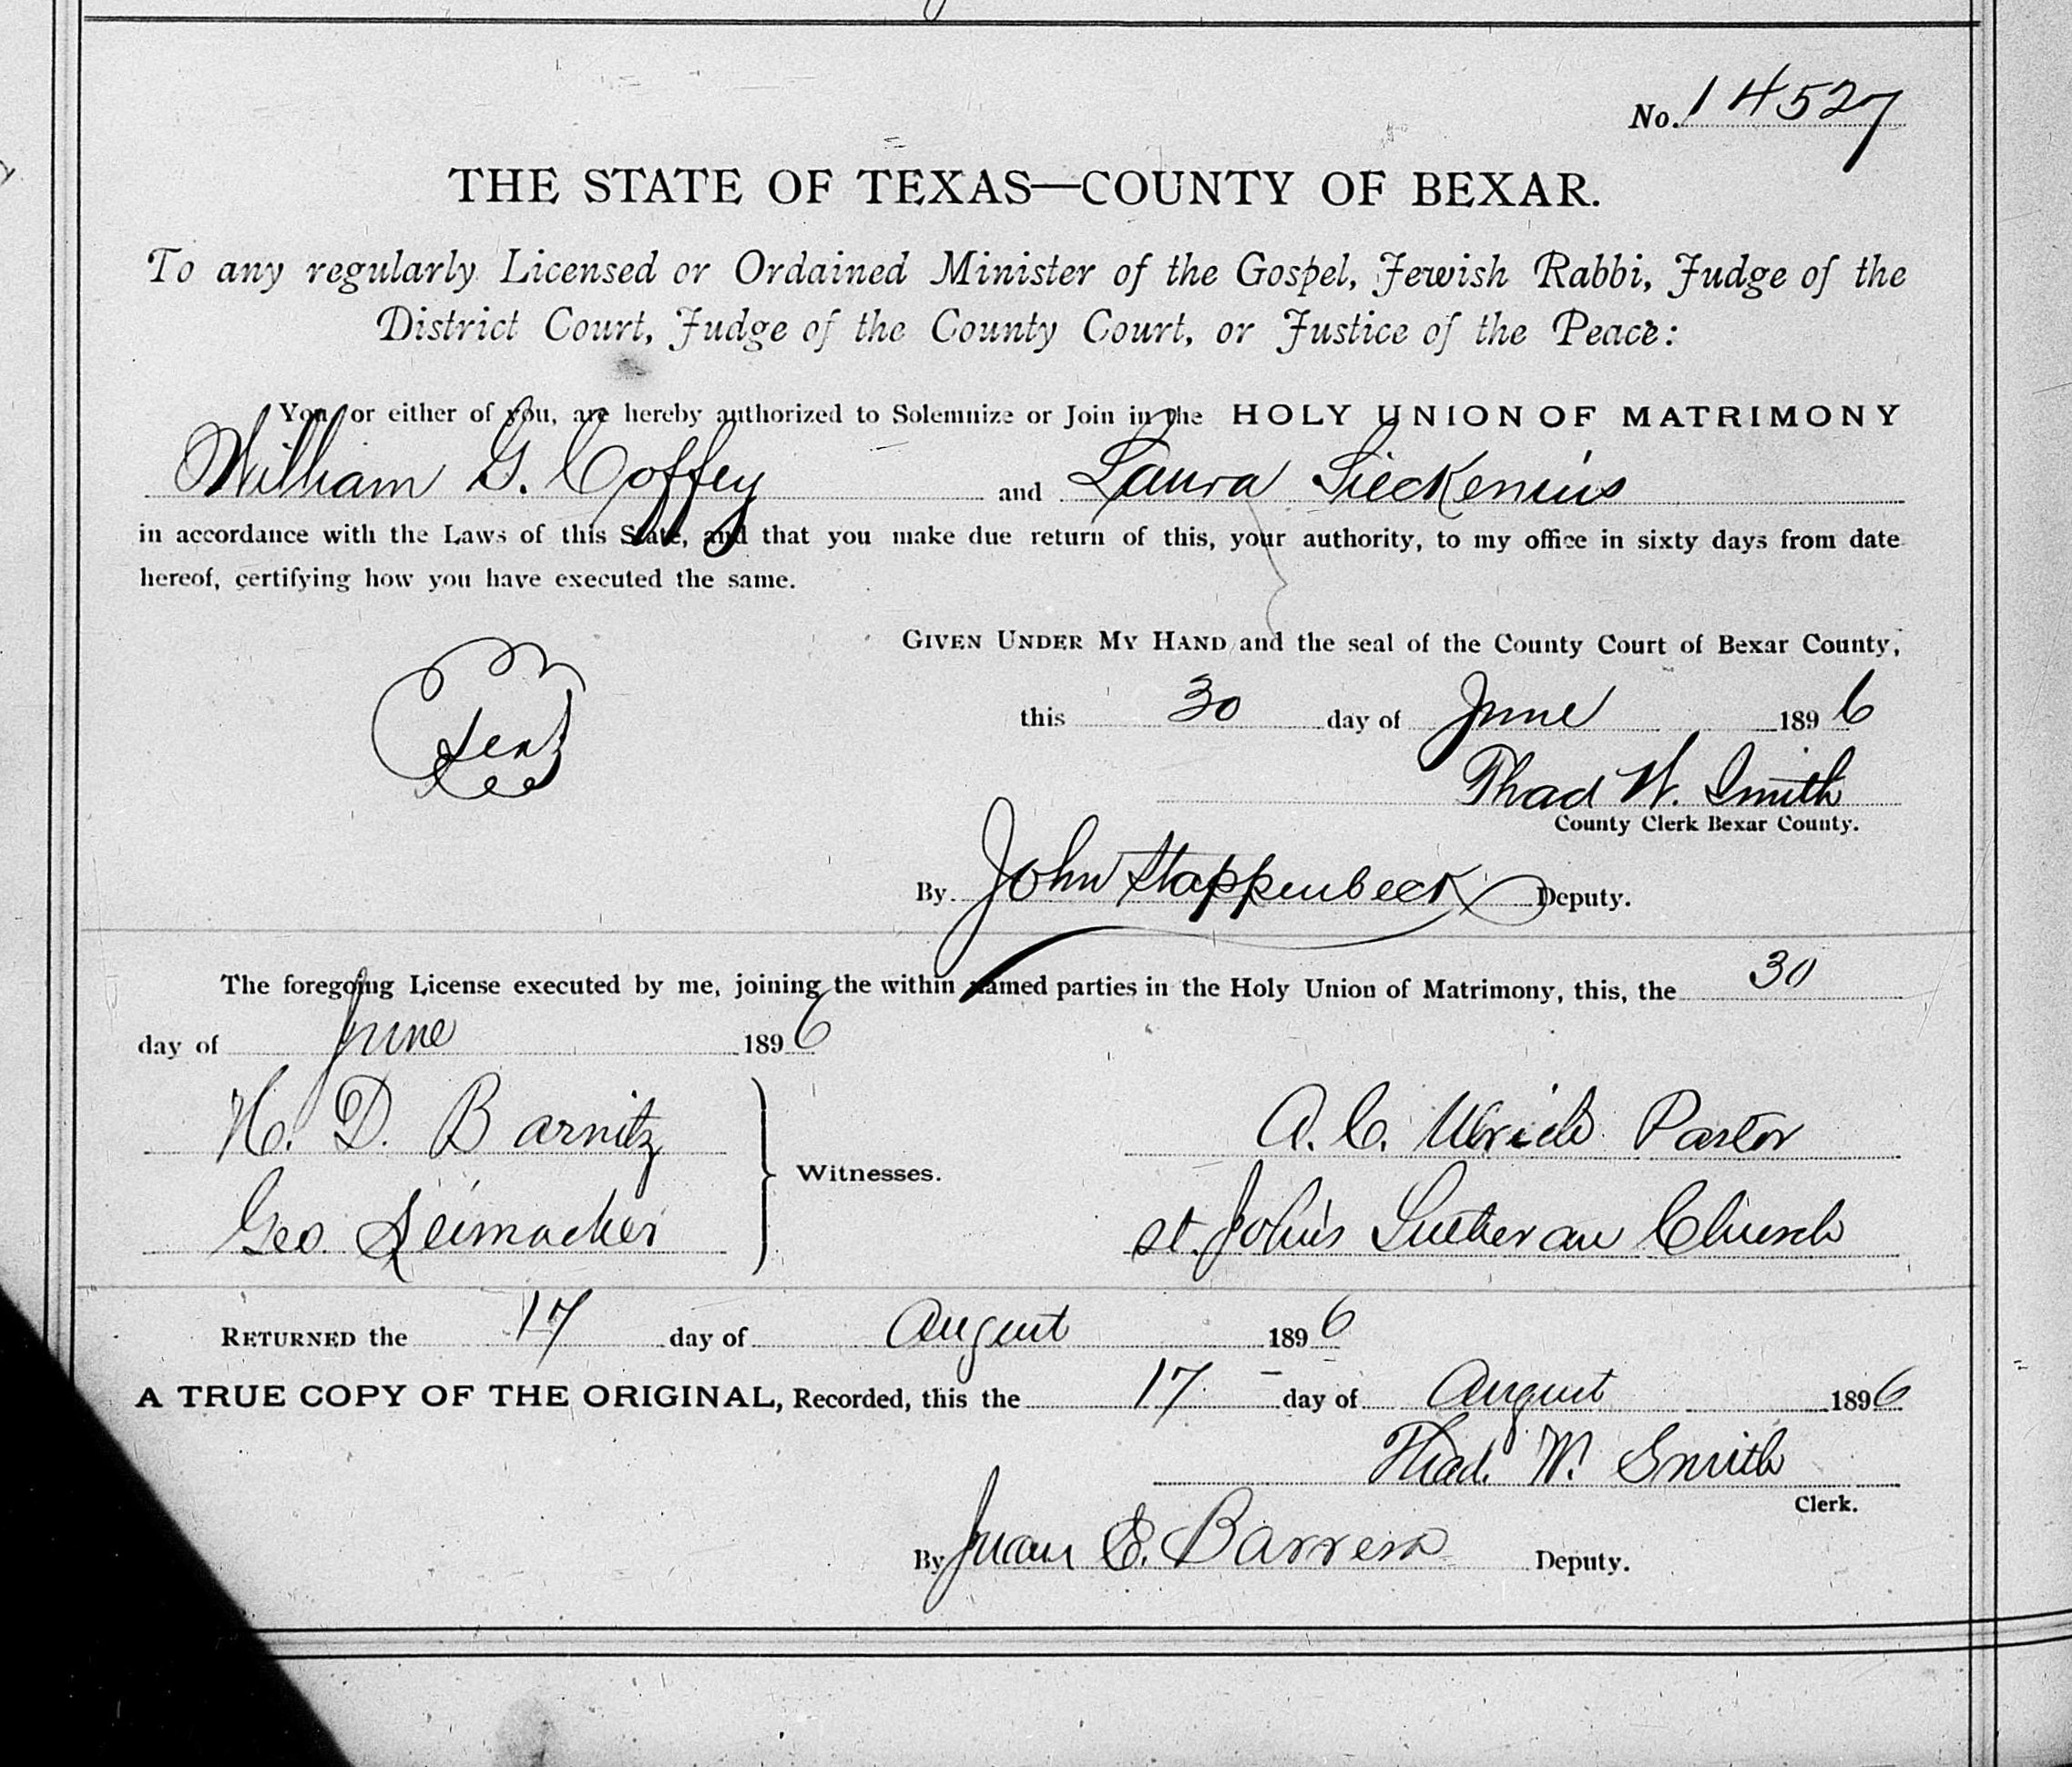 No. 14527
THE STATE OF TEXAS—COUNTY OF BEXAR.
To any regularly Licensed or Ordained Minister of the Gospel, Jewish Rabbi, Judge of the
District Court, Judge of the County Court, or Justice of the Peace:
You, or either of you, are hereby authorized to Solemnize or Join in the HOLY UNION OF MATRIMONY
William G. Coffey and Laura Sieckenius
in accordance with the Laws of this State, and that you make due return of this, your authority, to my office in sixty days from date
hereof, certifying how you have executed the same.
GIVEN UNDER MY HAND and the seal of the County Court of Bexar County,
Seal
this 30 day of June 1896
Thad W. Smith
County Clerk Bexar County.
By John Stappenbeck Deputy.
The foregoing License executed by me, joining the within named parties in the Holy Union of Matrimony, this, the 30
day of June 1896
H. D. Barnitz A. C. Ulrich Pastor
Witnesses.
Geo. St. John's Lutheran Church
RETURNED the 17 day of August 1896
A TRUE COPY OF THE ORIGINAL, Recorded, this the 17 day of August 1896
Thad. W. Smith
Clerk.
By Juan E. Barrera Deputy.